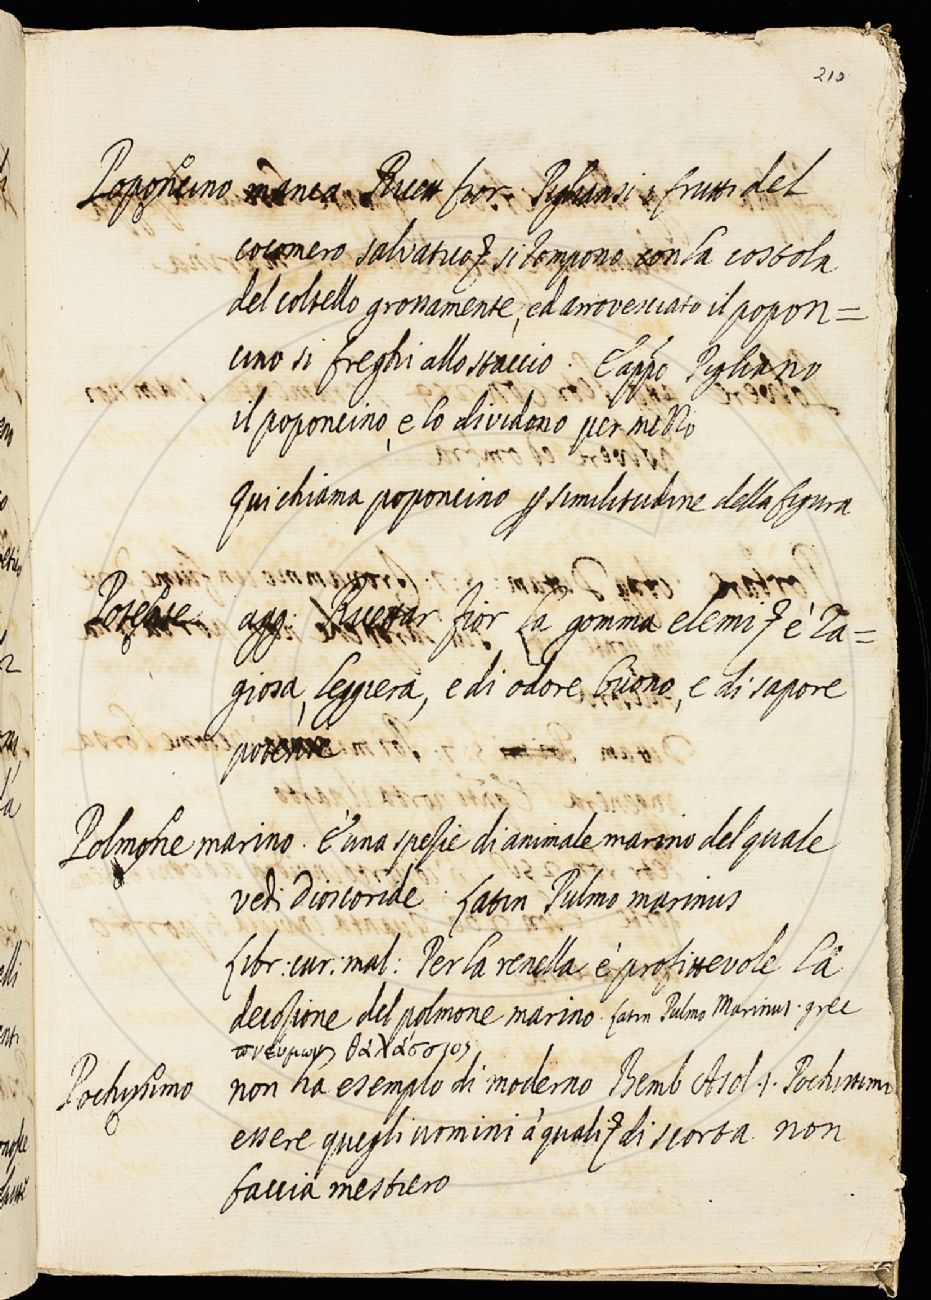 210
Poponcino manca Ricett fior Pigliansi i frutti del
cocomero salvatico si rompono con la costola
del coltello grossamente, ed arrovesciato il popon=
cino si freghi allo staccio. E appo Pigliano
il poponcino, e lo dividono per mezzo
qui chiama poponcino p similitudine della figura
Potente agg: Ricettar fior La gomma elemi è ra=
giosa, leggiera, e di odore buono, e di sapore
potente
Polmone marino. È una spezie di animale marino del quale
vedi Dioscoride Latin Pulmo marinus
Libr: cur: mal: Per la renella è profittevole la
decozione del polmone marino. Latin Pulmo Marinus. grec
πνεύμων θαλάσσιος
Pochissimo non ha esemplo di moderno Bemb Asol. 1. Pochissimi
essere quegli uomini a' quali di scorta non
faccia mestiero